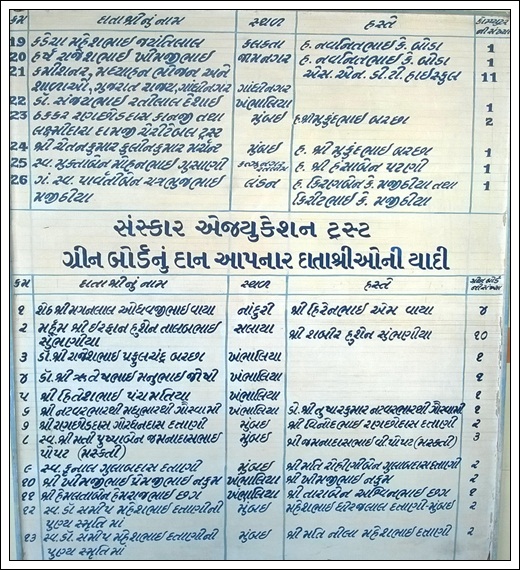 ક્રમ દાતાશ્રીનું નામ સ્થળ હસ્તે કોમ્પ્યુટરની સંખ્યા
19 કંદેયા મહેશભાઈ જયંતિલાલ કલકતા હ. નવનિતભાઈ કે. બોડા 1
20 હર્ષ રાજેશભાઈ ખીમજીભાઈ જામનગર હ. નવનિતભાઈ કે. બોડા 1
21 કમીશનર, મધ્યાહન ભોજન અને એસ. એન. ડી. ટી. હાઈસ્કુલ 11
શાળાઓ, ગુજરાત રાજ્ય, ગાંધીનગર ગાંધીનગર
22 ડો. સંજયભાઈ રતીલાલ દેશાઈ ખંભાળિયા 1
23 ઠકકર રણછોડદાસ કાનજી તથા મુંબઈ હ શ્રી મુકુંદભાઈ બરછા 2
લક્ષ્મીદાસ દામજી ચેરીટેબલ ટ્રસ્ટ
24 શ્રી ચેતનકુમાર ફુલીનકુમાર મર્ચન્ટ મુંબઈ હ. શ્રી મુકુંદભાઈ બરછા 1
25 સ્વ. મુકતાબેન મોહનભાઈ ગુસાણી હ. શ્રી હંસાબેન પટણી 1
26 ગં. સ્વ. પાર્વતીબેન ચત્રભુજભાઈ લંડન હ. કિરણબેન કે. મજીઠીયા તથા 1
મજીઠીયા કિરીટભાઈ કે. મજીઠીયા
સંસ્કાર એજ્યુકેશન ટ્રસ્ટ
ગ્રીન બોર્ડનું દાન આપનાર દાતાશ્રીઓની યાદી
ક્રમ દાતાશ્રીનું નામ સ્થળ હસ્તે ગ્રીન બોર્ડની સંખ્યા
૧ શેઠ શ્રી મગનલાલ ઓધવજીભાઈ વાયા નાંદુરી શ્રી હિરેનભાઈ એમ વાયા ૪
૨ મર્હુમ શ્રી ઈરફાન હુશેન તાલબભાઈ સલાયા શ્રી શબીર હુશેન સુંભણીયા ૧૦
સુંભણીયા
૩ ડૉ. શ્રી રાજેશભાઈ પ્રફુલચંદ્ર બરછા ખંભાળિયા ૧
૪ ડૉ. શ્રી સ્નેહલભાઈ મનુભાઈ જોષી ખંભાળિયા ૧
૫ શ્રી હિતેશભાઈ પંચમતિયા ખંભાળિયા ૧
૬ શ્રી નટવરભારથી મધુભારથી ગૌસ્વામી ખંભાળિયા ડૉ. શ્રી તુષારકુમાર નટવરભારથી ગૌસ્વામી ૧
૭ શ્રી રણછોડદાસ ગોરધનદાસ દતાણી મુંબઈ શ્રી વિનોદભાઈ રણછોડદાસ દતાણી ૨
૮ સ્વ. શ્રી મતી પુષ્પાબેન જમનાદાસભાઈ મુંબઈ શ્રી જમનાદાસભાઈ વી પોપટ (મસ્કતી) ૩
પોપટ (મસ્કતી)
૯ સ્વ. કુનાલ ગુલાબદાસ દતાણી મુંબઈ શ્રી મતિ રોહીણીબેન ગુલાબદાસ દતાણી ૨
૧૦ શ્રી ખીમજીભાઈ પ્રેમજીભાઈ નકુમ ખંભાળિયા શ્રી ખીમજીભાઈ નકુમ ૨
૧૧ શ્રી હેમલતાબેન હંસરાજભાઈ છગ ખંભાળિયા શ્રી તારાબેન અશ્વિનભાઈ છગ ૧
૧૨ સ્વ. ડૉ. સમીપ મહેશભાઈ દતાણીની મુંબઈ મહેશભાઈ હીરજલાલ દતાણી-મુંબઈ ૨
પુણ્ય સ્મૃતિ માં
૧૩ સ્વ. ડૉ. સમીપ મહેશભાઈ દતાણીની મુંબઈ શ્રી મતિ નીલા મહેશભાઈ દતાણી ૨
પુણ્ય સ્મૃતિ માં